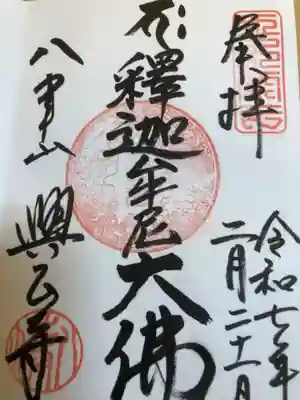 奉拝
令和七年
二月二十一日
釋迦牟尼大佛
八事山
興正寺